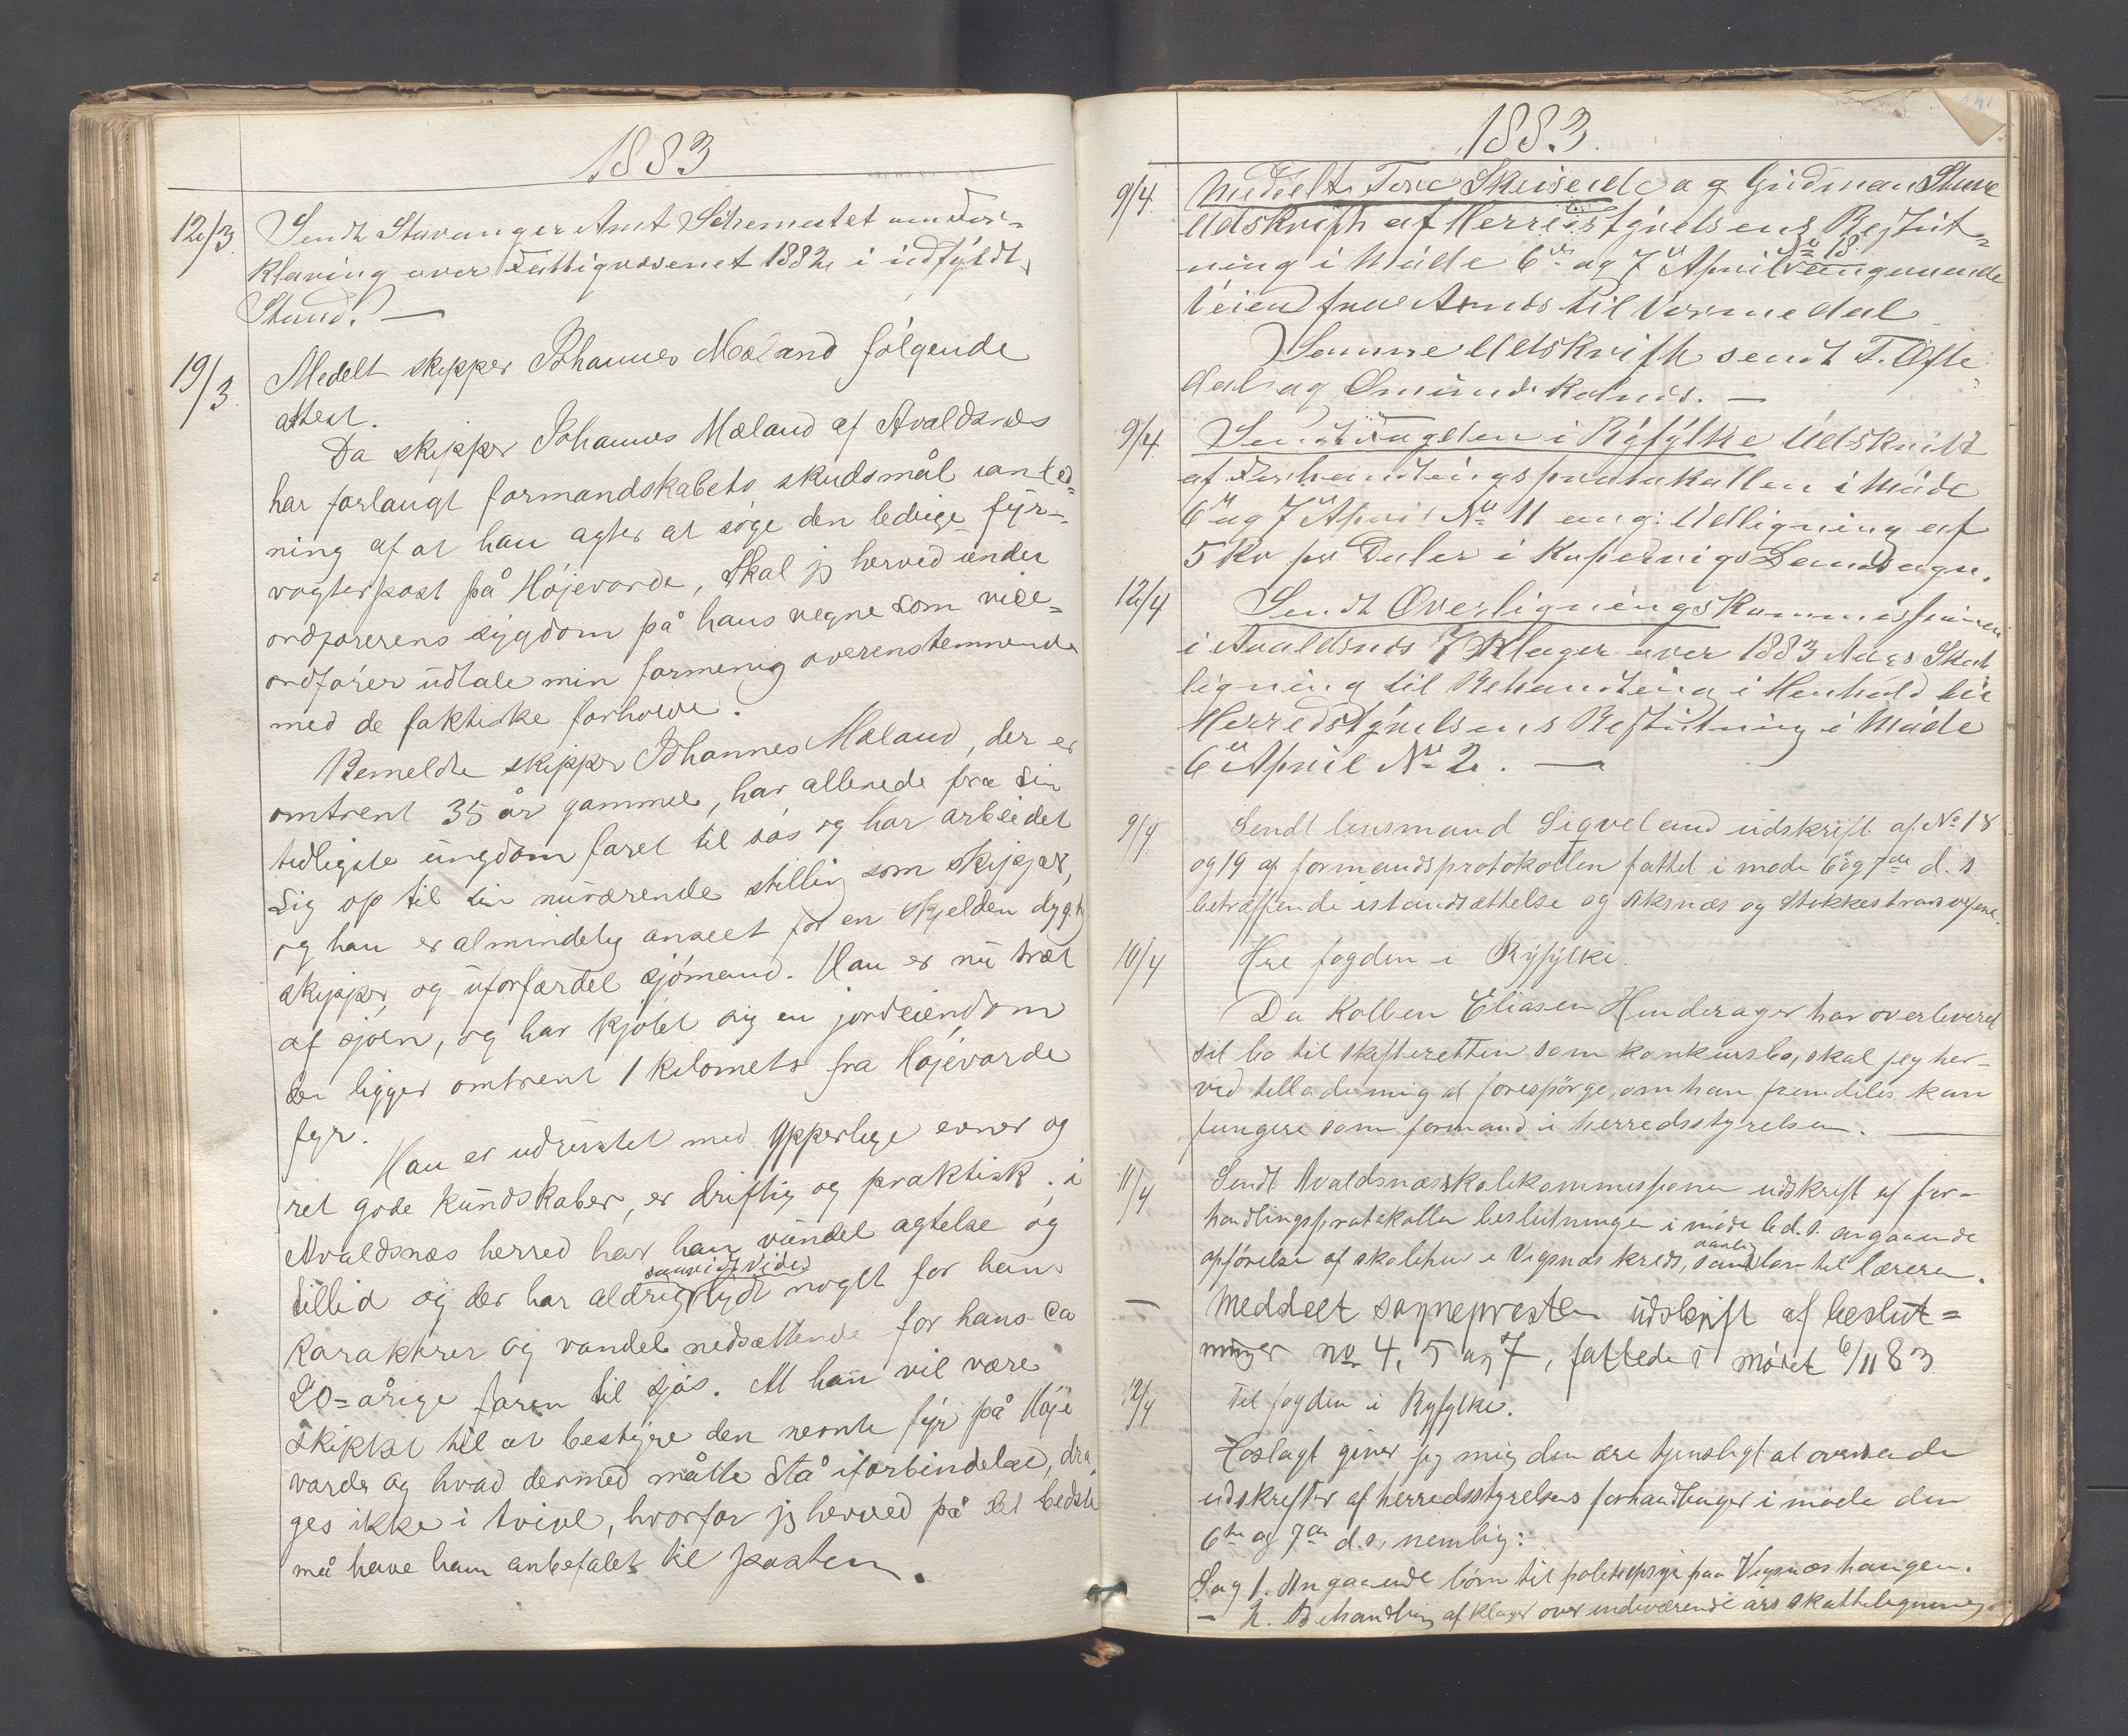 1883
12/3 Sendt Stavanger Amt Schematet
klaring over Fattigvæsenet 1882 i udfyldt
Stand. —
19/3 Medelt skipper Johannes Mæland følgende
attest.
Da skipper Johannes Mæland af Avaldsnæs
har forlangt formandskabets skudsmål i anled=
ning af at han agter at søge den ledige fyr=
vogterpost på Højevarde, skal jg herved under
ordførerens sygdom på hans vegne som vice=
ordfører udtale min formenig overenstemmende
med de faktiske forholde.
Bemeldte skipper Johannes Mæland, der er
omtrent 35 år gammel, har allerede fra sin
tidligste ungdom faret til søs og har arbeidet
sig op til sin nuværende stillig som skipper,
og han er almindelig anseet for en skjelden dygtig
skipper og uforfærdet sjømand. Han er nu træt
af sjøen, og har kjøbt sig en jordeiendom
der ligger omtrent 1 kilomets fra Højevarde
fyr.
Han er udrustet med ypperlige evner og
ret gode kundskaber, er driftig og praktisk; i
Avaldsnæs herred har han vundet agtelse og
tillid og der har aldrig saavidt vides lydt noget for hans
karakterer og vandel nedsættende for hans ca
20-årige faren til sjøs. At han vil være
skikket til at bestyre den nevnte fyr på Høje
varde og hvad dermed måtte stå i forbindelse, dra
ges ikke i tvivl, hvorfor jg herved på det bedste
må have ham anbefalet til posten.
1883.
9/4. Meddelt Tore Skeiseid og Gudman Stave
Udskrift af Herredstyrelsens Beslut=
ning i Møde 6te og 7de April No 18 angaaende
Veien fra til Vormedal
Samme Udskrift sendt T. Ofte
dal og Omund Kolnes. —
9/4. Sendt Fogden i Ryfylke Udskrift
af Forhandlingsprotokollen i Møde
6te og 7de April No 11 ang: Udligning af
5 Kr pr Daler i Kopervigs Landsogn.
12/4 Sendt Overligningskommissionen
i Avaldsnes 7 Klager over 1883 Aars Skat
ligning til Behandling i Henhold til
Herredstyrelsens Beslutning i Møde
6te April No 2. —
9/4 Sendt lensmand Sigveland udskrift af No 18
og 19 af formandsprotokollen fattet i møde 6te og 7de d. s.
betræffende istandsættelse og Aksnæs og Stokkestrandsvejene.
10/4 Hre fogden i Ryfylke.
Da Kolben Eliasen Hinderager har overleveret
sit bo til skifteretten som konkursbo, skal jeg her-
ved tillade mig at forespørge, om han fremdeles kan
fungere som formand i herredsstyrelsen. —
11/4 Sendt Avaldsnæs skolekommission udskrift af for-
handlingsprotokollen beslutninger i møde 6 d. s. angaaende
opførelse af skolehus i Vigsnæs kreds, samt løn til lærere.
— Meddelt sognepresten udskrift af beslut=
ninger no 4, 5 og 7, fattede i mødet 6/4 83
12/4 Til fogden i Ryfylke.
Hoslagt giver jeg mig den ære tjenstligt at oversende
udskrifter af herredsstyrelsens forhandlinger i møde den
6te og 7de d. s. nemlig:
Sag 1. Angaaende løn til politiopsyn paa Vigsnæshaugen.
— 2. Behandling af klager over indeværende års skatteligning.